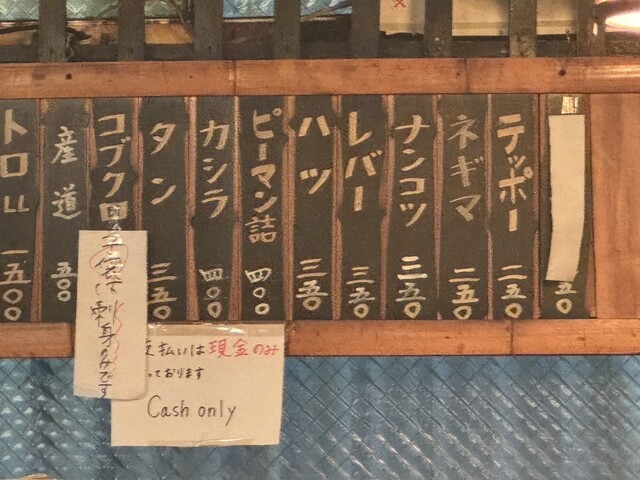 五〇
テッポー 二五〇
ネギマ 二五〇
ナンコツ 二五〇
レバー 三五〇
ハツ 三五〇
ピーマン詰 四〇〇
カシラ 四〇〇
タン 三五〇
コブクロ
産道 五〇〇
トロ 一五〇〇
刺身のみです
払いは現金のみ
っております
Cash only